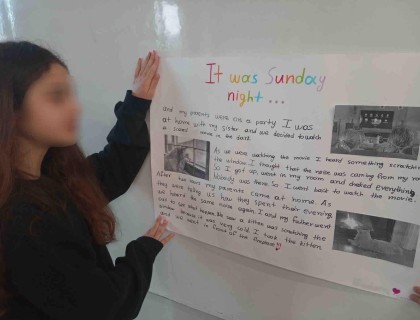 It was Sunday
night ...
and my parents were on a party. I was
at home with my sister and we decided to watch
a movie in the dark.
As we were watching the movie I heard something scratching
the window. I thought that the noise was coming from my room
So I got up, went in my room and checked everything
Nothing was there so I went back to watch the movie.
After two hours my parents came at home. As
they were telling us how they spent their evening
we heard the same noise again. I and my father went
out to see what was. We saw a kitten was scratching the
window because it was cold. I took the kitten
and we went in front of the fireplace